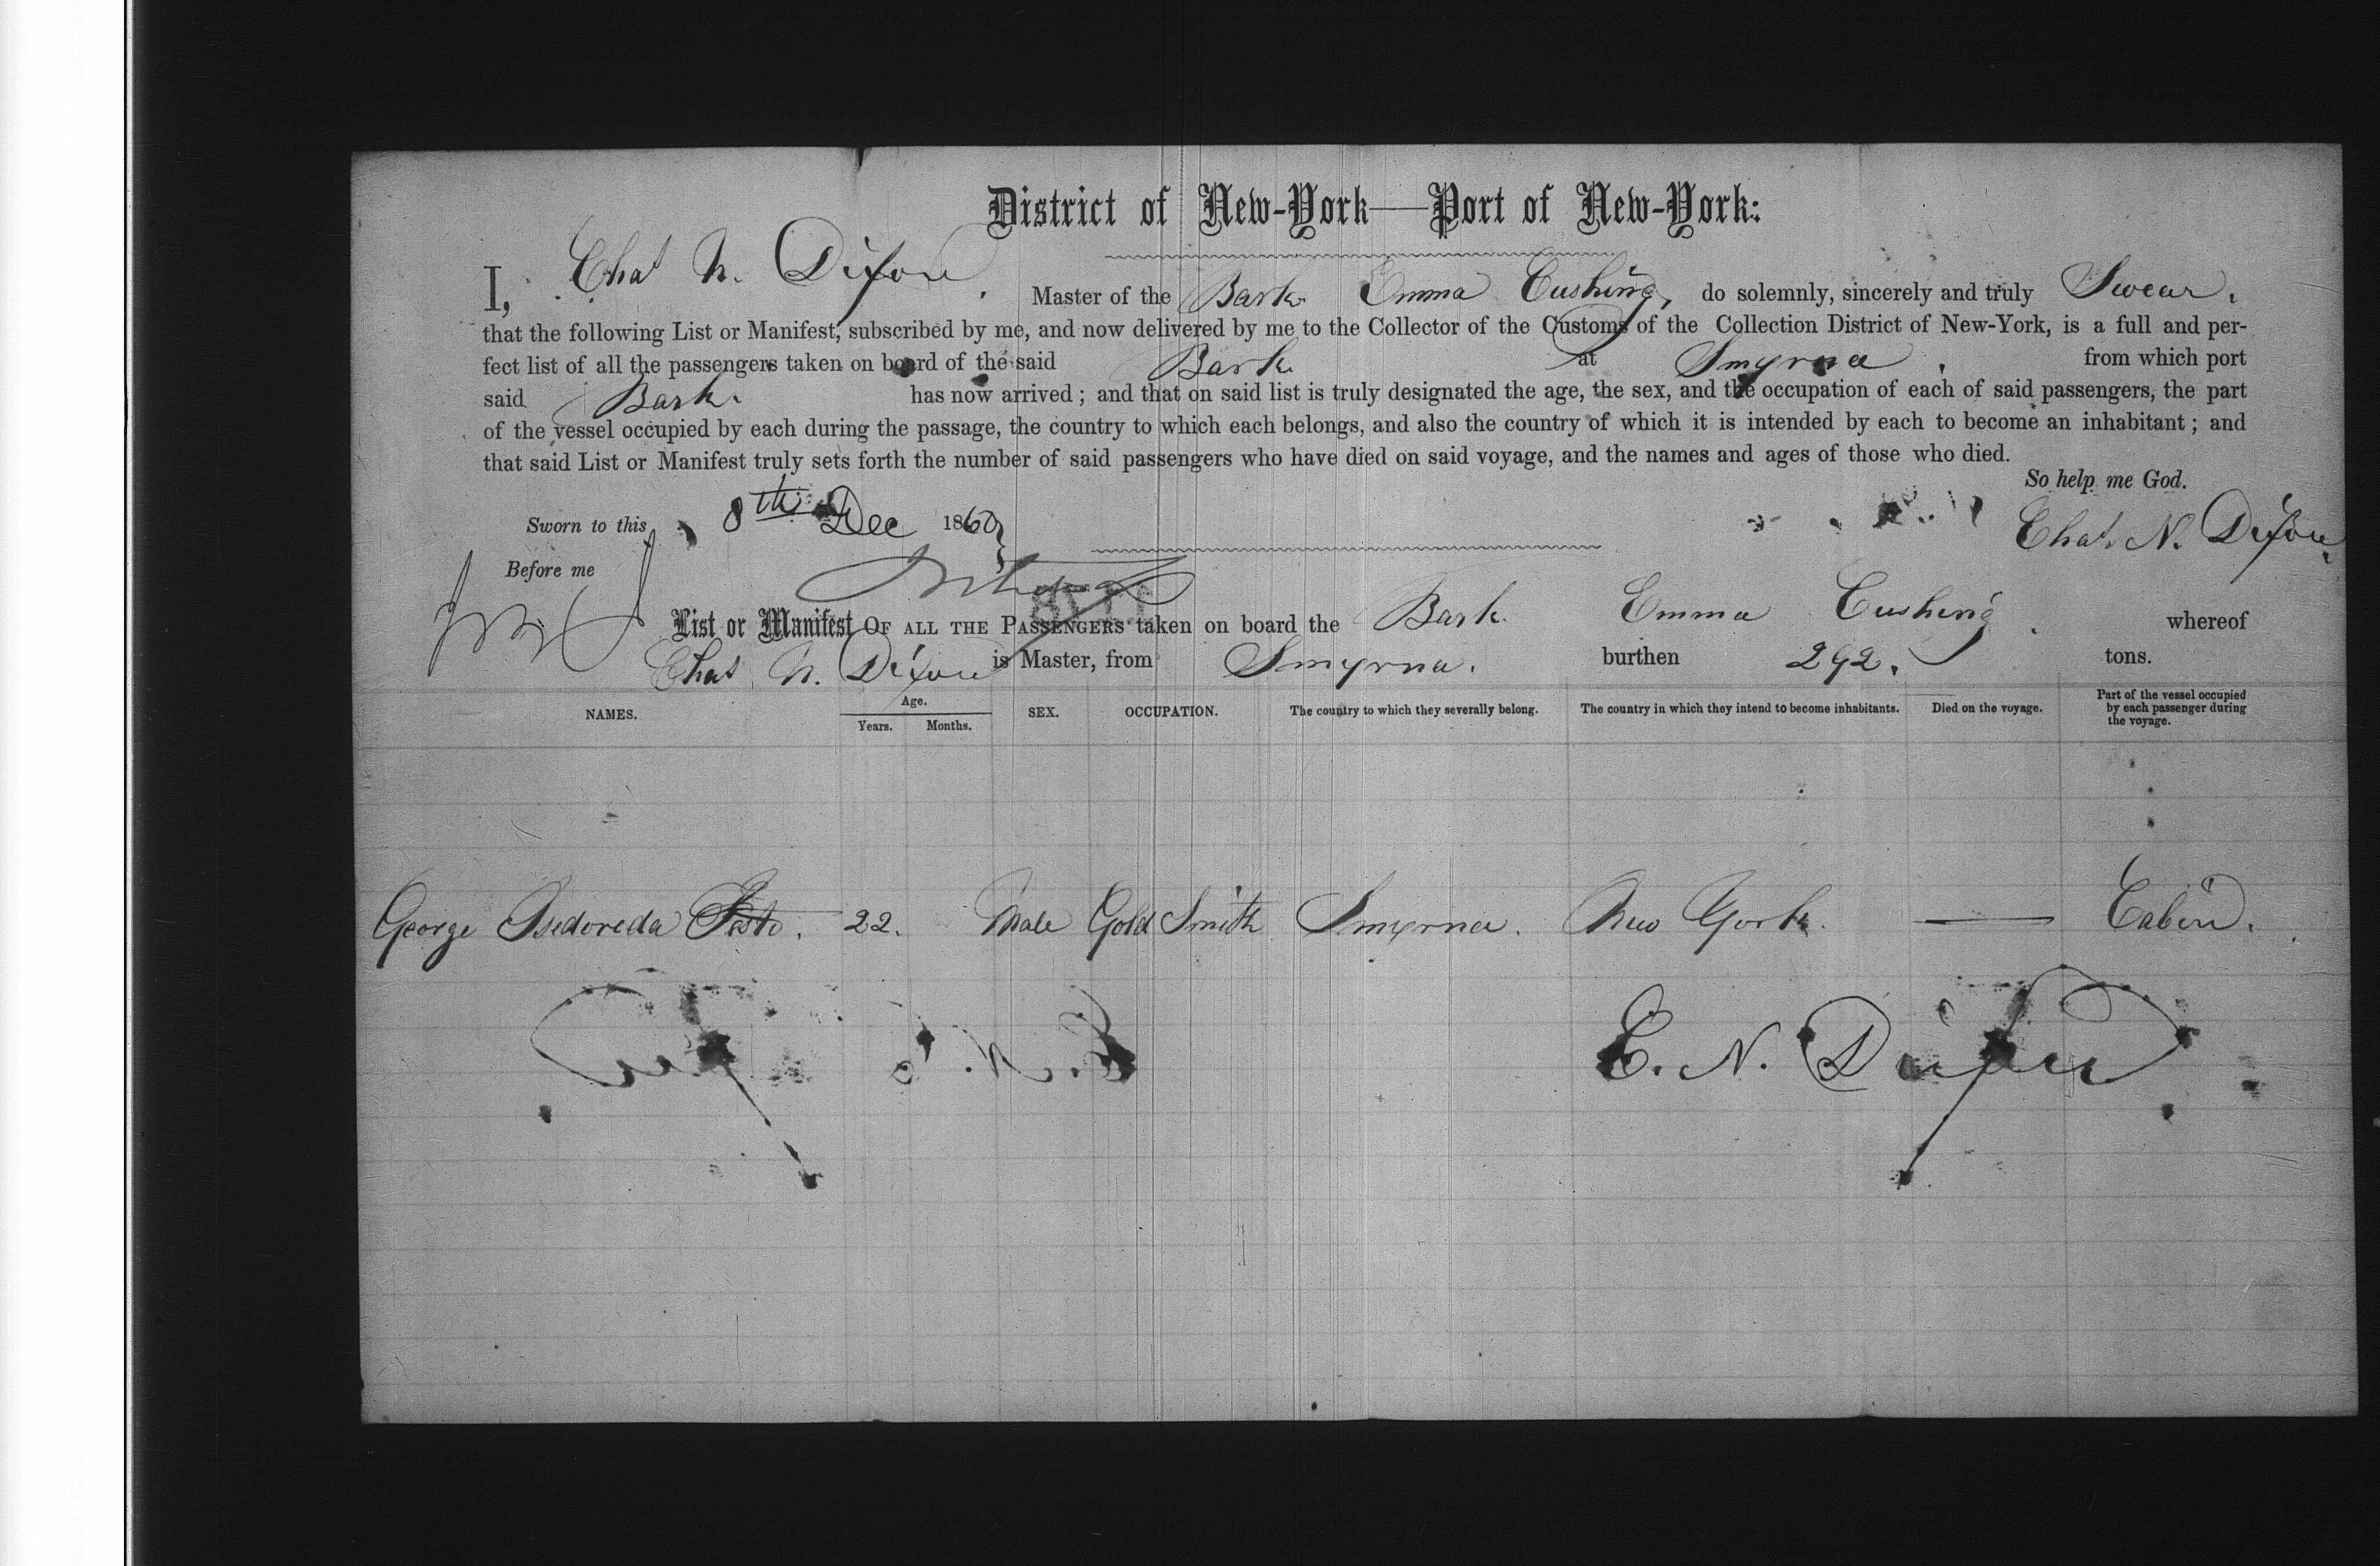 District of New-York—Port of New-York:
I, Chas N. Dixon, Master of the Bark Emma Cushing, do solemnly, sincerely and truly Swear,
that the following List or Manifest, subscribed by me, and now delivered by me to the Collector of the Customs of the Collection District of New-York, is a full and per-
fect list of all the passengers taken on board of the said Bark at Smyrna, from which port
said Bark has now arrived; and that on said list is truly designated the age, the sex, and the occupation of each of said passengers, the part
of the vessel occupied by each during the passage, the country to which each belongs, and also the country of which it is intended by each to become an inhabitant; and
that said List or Manifest truly sets forth the number of said passengers who have died on said voyage, and the names and ages of those who died.
So help me God.
Sworn to this 8th Dec 1860 Chas. N. Dixon
Before me
List or Manifest OF ALL THE PASSENGERS taken on board the Bark Emma Cushing. whereof
Chas N. Dixon is Master, from Smyrna. burthen 292. tons.
NAMES. Age. Years. Months. SEX. OCCUPATION. The country to which they severally belong. The country in which they intend to become inhabitants. Died on the voyage. Part of the vessel occupied by each passenger during the voyage.
George 22. Male Gold Smith Smyrna. New York. — Cabin.
C. N. Dixon